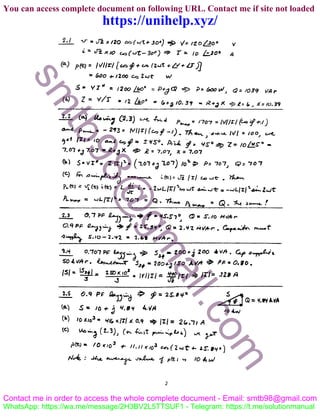 You can access complete document on following URL. Contact me if site not loaded
https://unihelp.xyz/
2.1 v = √2 × 120 cos(ωt+30°) ⇒ V = 120 ∠30° V
i = √2 × 10 cos(ωt-30°) ⇒ I = 10 ∠-30° A
(a) p(t) = |V||I| [cos φ + cos(2ωt + ∠V + ∠I)]
= 600 + 1200 cos 2ωt W
S = VI* = 1200 ∠60° = P + jQ ⇒ P = 600 W, Q = 1039 VAr
(b) Z = V/I = 12 ∠60° = 6 + j10.39 = R + jX ⇒ R = 6, X = 10.39
2.2 (a) Using (2.3) we find pmax = 1707 = |V||I|(cos φ + 1)
and pmin = -293 = |V||I|(cos φ - 1). Then, since |V| = 100, we
get |I| = 10 and cos φ =
7.07 + j7.07 = R + jX ⇒ R = 7.07, X = 7.07
(b) S = VI* = Z|I|² = (7.07 + j7.07) 10² ⇒ P = 707, Q = 707
(c) For simplicity assume i(t) = √2 |I| cos ωt. Then
= -ωL|I|² sin 2ωt
pLmax = ωL|I|² = 707 = Q. Thus pLmax = Q, the same!
2.3 0.7 PF lagging ⇒ φ = 45.57° ⇒ Q = 5.10 MVAr
0.9 PF lagging ⇒ φ = 25.84° ⇒ Q = 2.42 MVAr. Capacitor must
supply 5.10 - 2.42 = 2.68 MVAr.
2.4 0.707 PF lagging ⇒ S3φ = 200 + j200 kVA. Cap supplies
50 kVAr. Resultant S3φ = 200 + j150 kVA ⇒ PF = 0.80.
|S| = |S3φ|/3 = 250×10³/3 = |V||I| = |I| ⇒ |I| = 328 A
2.5 0.9 PF lagging ⇒ φ = 25.84°
(a) S = 10 + j 4.84 kVA
S Q = 4.84 kVA
10 kW
(b) 10×10³ = 416 × |I| × 0.9 ⇒ |I| = 26.71 A
(c) Using (2.3), (or first principles) we get
p(t) = 10×10³ + 11.11×10³ cos(2ωt + 25.84°)
Note: the average value of p(t) is 10 kW
2
smtb98@gmail.com
Contact me in order to access the whole complete document - Email: smtb98@gmail.com
WhatsApp: https://wa.me/message/2H3BV2L5TTSUF1 - Telegram: https://t.me/solutionmanual